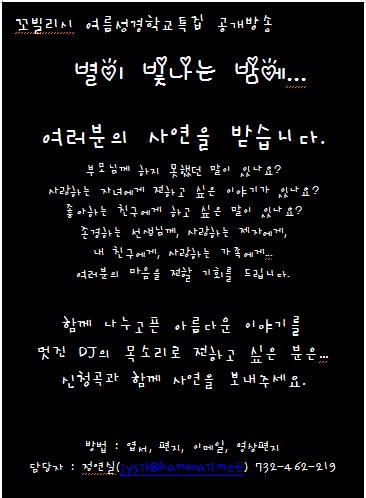 꼬빌리시 여름성경학교특집 공개방송
별이 빛나는 밤에...
여러분의 사연을 받습니다.
부모님께 하지 못했던 말이 있나요?
사랑하는 자녀에게 전하고 싶은 이야기가 있나요?
좋아하는 친구에게 하고 싶은 말이 있나요?
존경하는 선생님께, 사랑하는 제자에게,
내 친구에게, 사랑하는 가족에게...
여러분의 마음을 전할 기회를 드립니다.
함께 나누고픈 아름다운 이야기를
멋진 DJ의 목소리로 전하고 싶은 분은...
신청곡과 함께 사연을 보내주세요.
방법 : 엽서, 편지, 이메일, 영상편지
담당자 : 정연실(jysil@hanmail.net) 732-462-219